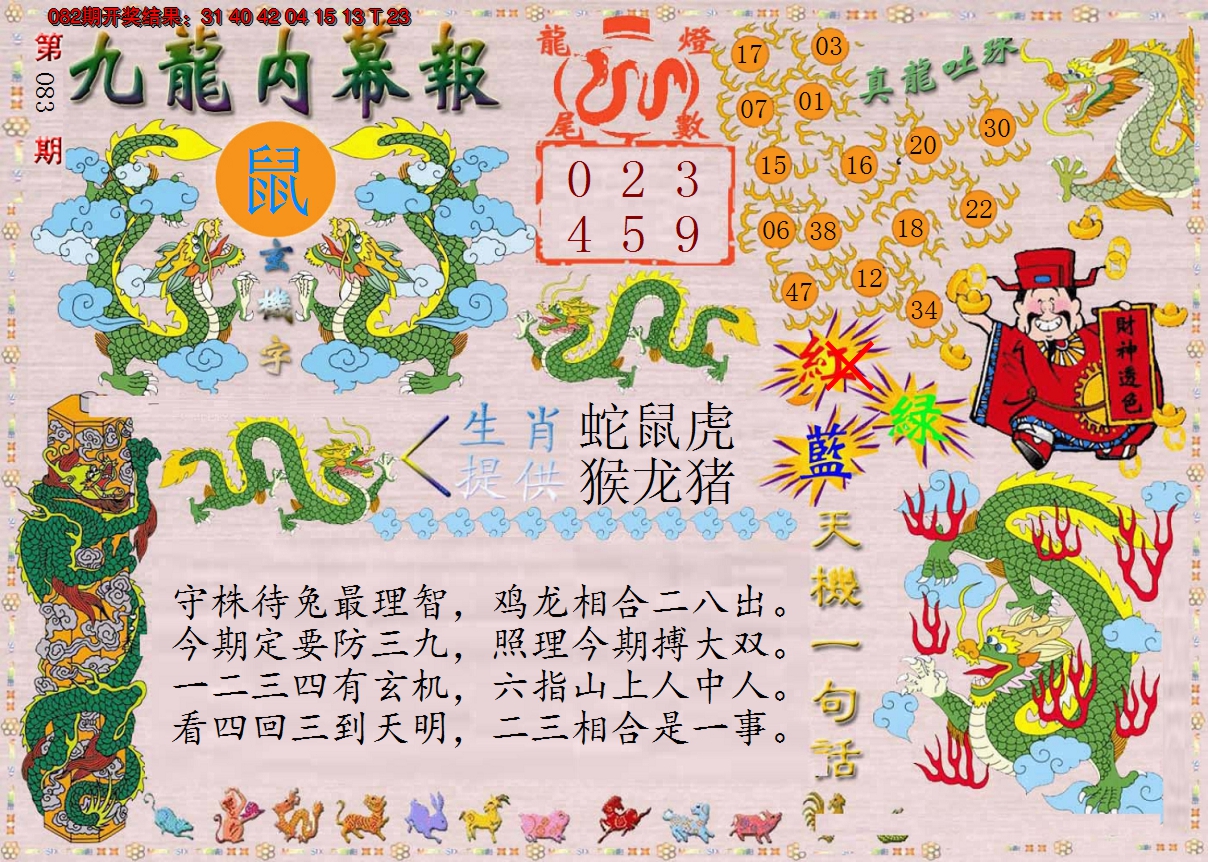 082期开奖结果：31 40 42 04 15 13 T 23
第083期
九龍内幕報
鼠
玄機字
龍燈
尾數
0 2 3
4 5 9
真龍吐珠
17
03
07
01
15
16
20
30
06
38
18
22
47
12
34
紅
綠
藍
財神透色
生肖
提供
蛇鼠虎
猴龙猪
守株待兔最理智，鸡龙相合二八出。
今期定要防三九，照理今期搏大双。
一二三四有玄机，六指山上人中人。
看四回三到天明，二三相合是一事。
天機一句话